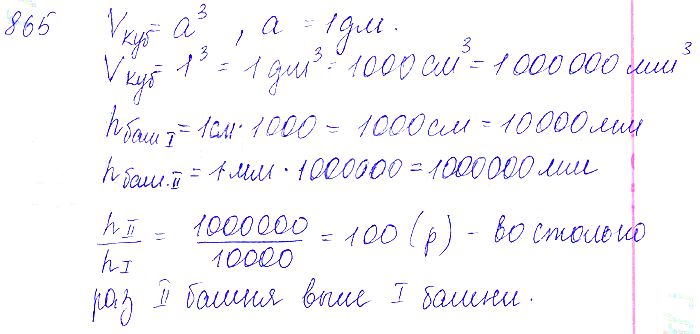 865 Vкуб = a³, a = 1 дм.
Vкуб = 1³ = 1 дм³ = 1000 см³ = 1 000 000 мм³
hбаш I = 1 см · 1000 = 1000 см = 10000 мм
hбаш. II = 1 мм · 1000000 = 1000000 мм
hII/hI = 1000000/10000 = 100 (р) - во столько
раз II башня выше I башни.